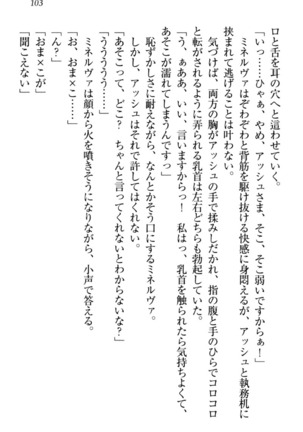 103
ロと舌を耳の穴へと這わせていく。
「いっ……ひゃぁ、やめ、アッシュさま、そこ、そこ弱いですからぁ！」
ミネルヴァはぞわぞわと背筋を駆け抜ける快感に身悶えるが、アッシュと執務机に
挟まれて逃げることは叶わない。
気づけば、両方の胸がアッシュの手で揉みしだかれ、指の腹と手のひらでコロコロ
と転がされるように弄られる乳首は左右どちらも勃起していた。
「う、ぁああ、い、言いますからっ！　私はっ、乳首を触られたら気持ちよくて、
あそこが濡れてしまうんですっ」
恥ずかしさに耐えながら、なんとかそう口にするミネルヴァ。
しかし、アッシュはそれで許してはくれない。
「あそこって、どこ？　ちゃんと言ってくれないとわからないな？」
「うううう……お、おま×こ……」
ミネルヴァは顔から火を噴きそうになりながら、小声で答える。
「ん？」
「おま×こが」
「聞こえない」